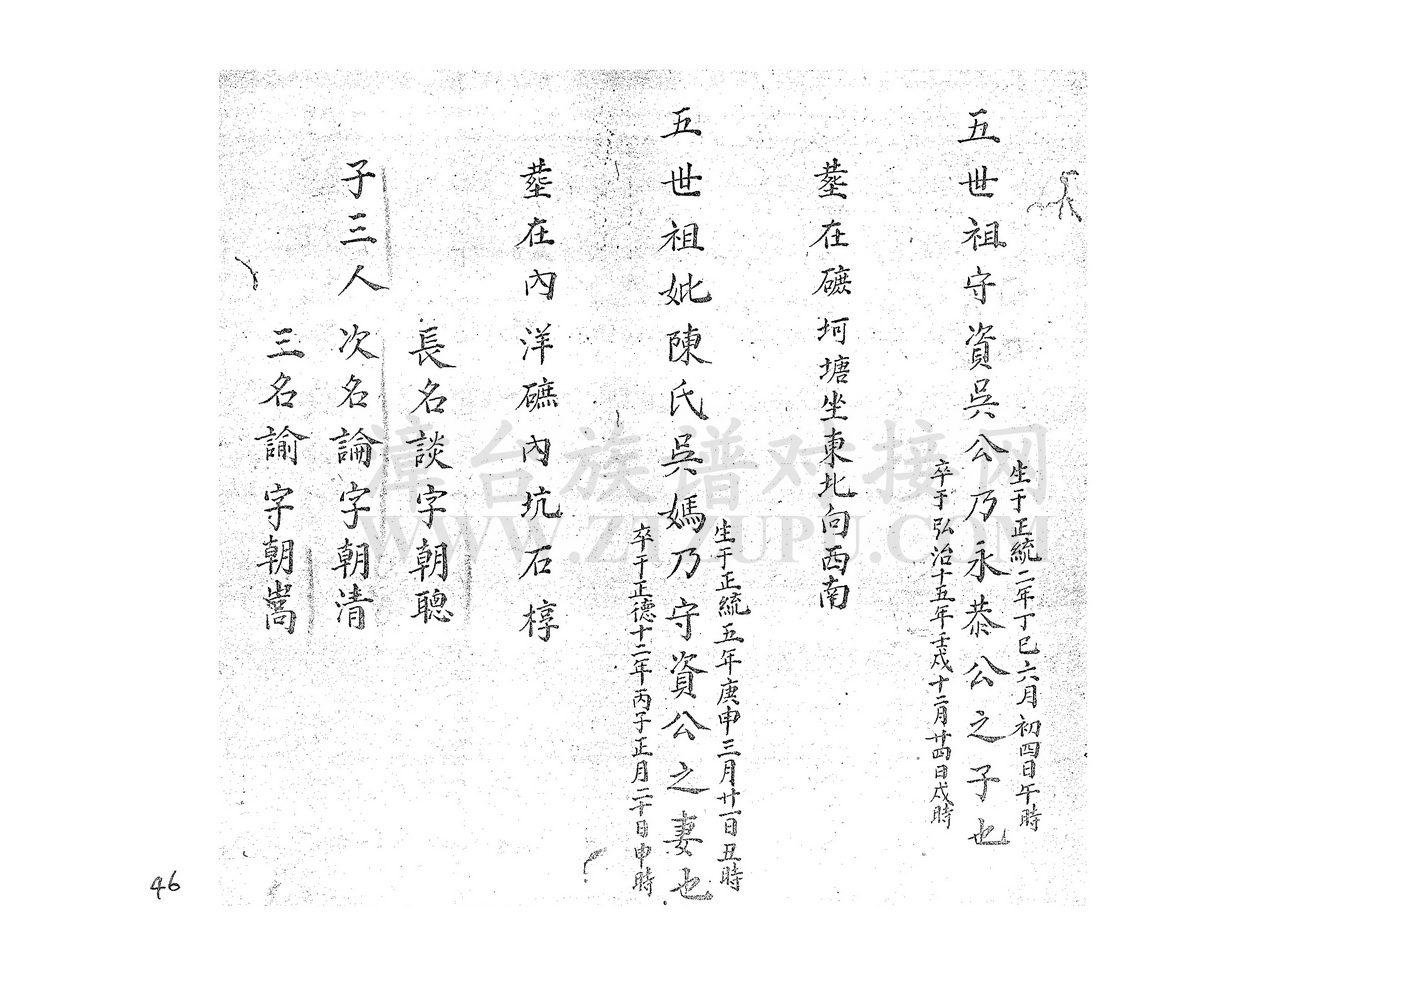 五世祖守資吳公乃永恭公之子也
生于正統二年丁巳六月初四日午時
卒于弘治十五年壬戍十二月廿四日戍時
塟在磜坷塘坐東北向西南
五世祖妣陳氏吳媽乃守資公之妻也
生于正統五年庚申三月廿一日丑時
卒于正德十二年丙子正月二十日申時
塟在內洋磜內坑石椁
長名談字朝聰
子三人 次名論字朝清
三名諭字朝嵩
46
漳台族谱对接网
WWW.ZTZUPU.COM